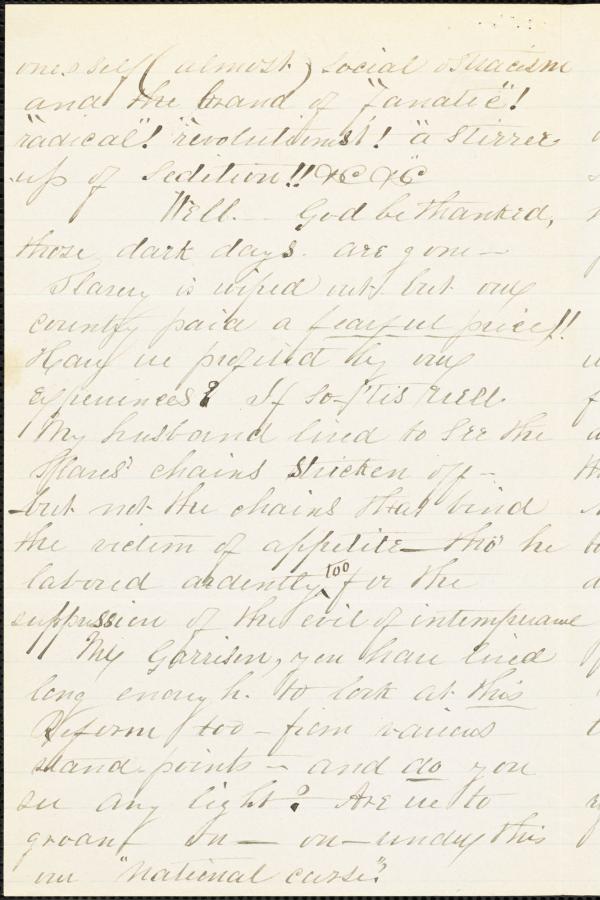 ones self (almost) social ostracism
and the brand of "Fanatic"!
"radical"! "revolutionist"! "a stirrer
up of sedition!! &C &C
Well. God be thanked,
those dark days. are gone—
Slavery is wiped out but our
country paid a fearful price!!
Have we profited by our
experiences? If so—'tis well.
My husband lived to see the
Slaves' chains stricken off—
but not the chains that bind
the victim of appetite—tho' he
labored ardently too for the
suppression of the evil of intemperance
Mr Garrison, you have lived
long enough. to look at this
Reform too—from various
stand points—and do you
see any light? Are we to
groan on—on—under this
our "national curse"?